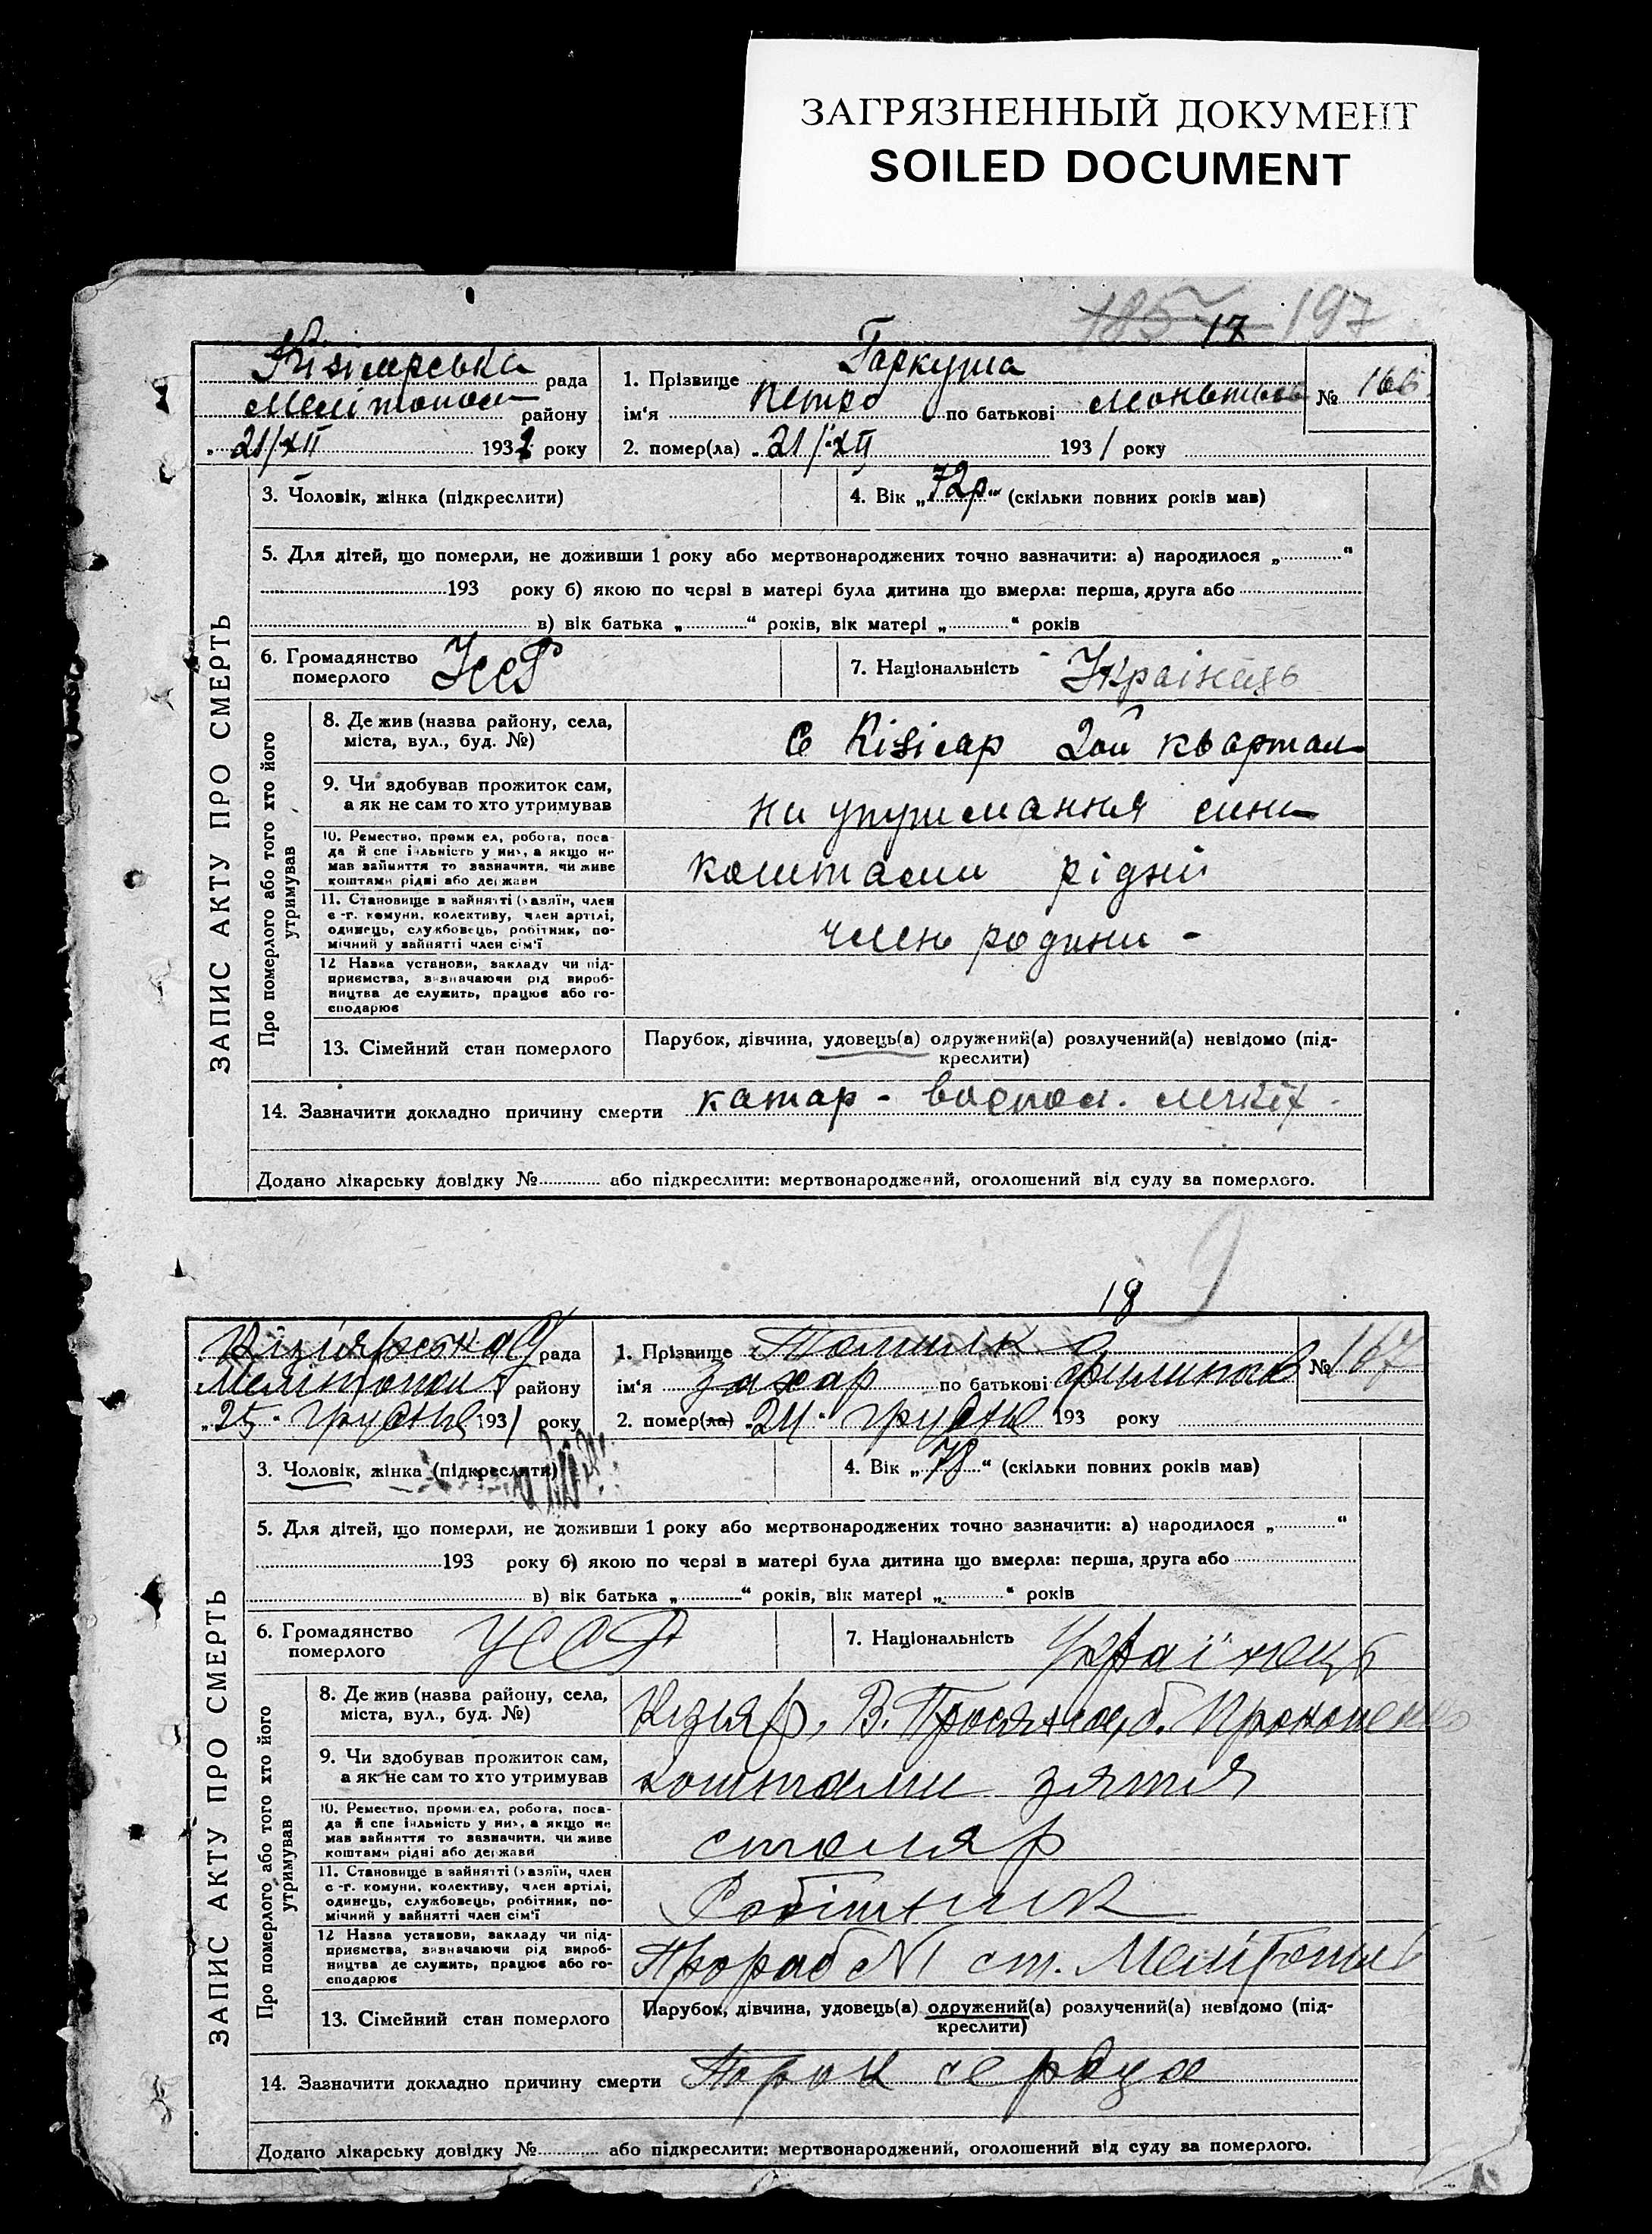 ЗАГРЯЗНЕННЫЙ ДОКУМЕНТ
SOILED DOCUMENT
185 17 197
Кізіярська рада
Мелітополь району
21/XII 1931 року
1. Прізвище Гаркуша
ім'я Петро по батькові № 166
2. помер(ла) „21/XII 1931 року
ЗАПИС АКТУ ПРО СМЕРТЬ
3. Чоловік, жінка (підкреслити)
4. Вік „72р“ (скільки повних років мав)
5. Для дітей, що померли, не доживши 1 року або мертвонароджених точно зазначити: а) народилося „............“
193 року б) якою по черзі в матері була дитина що вмерла: перша, друга або
в) вік батька „............“ років, вік матері „............“ років
6. Громадянство
померлого УССР
7. Національність Українець
Про померлого або того хто його
утримував
8. Де жив (назва району, села,
міста, вул., буд. №)
с Кізіяр 2ой квартал
9. Чи здобував прожиток сам,
а як не сам то хто утримував
на утримання сина
10. Ремество, промисел, робота, поса-
да й спеціяльність у них, а якщо не
мав зайняття то зазначити, чи живе
коштами рідні або держави
коштами рідні
11. Становище в зайнятті (хазяїн, член
с.-г. комуни, колективу, член артілі,
одинець, службовець, робітник, по-
мічний у зайнятті член сім'ї
член родини -
12 Назва установи, закладу чи під-
приємства, визначаючи рід вироб-
ництва де служить, працює або го-
сподарює
13. Сімейний стан померлого
Парубок, дівчина, удовець(а) одружений(а) розлучений(а) невідомо (під-
креслити)
14. Зазначити докладно причину смерти катар - воспал. легкіх
Додано лікарську довідку №............ або підкреслити: мертвонароджений, оголошений від суду за померлого.
18
Кізіярська рада
Мелітопол району
„25“ грудня 1931 року
1. Прізвище
ім'я Захар по батькові Филипов № 167
2. помер(ла) „24“ грудня 193 року
ЗАПИС АКТУ ПРО СМЕРТЬ
3. Чоловік, жінка (підкреслити)
4. Вік „78“ (скільки повних років мав)
5. Для дітей, що померли, не доживши 1 року або мертвонароджених точно зазначити: а) народилося „............“
193 року б) якою по черзі в матері була дитина що вмерла: перша, друга або
в) вік батька „............“ років, вік матері „............“ років
6. Громадянство
померлого УССР
7. Національність Українець
Про померлого або того хто його
утримував
8. Де жив (назва району, села,
міста, вул., буд. №)
Кізіяр, В. б.
9. Чи здобував прожиток сам,
а як не сам то хто утримував
коштами зятя
10. Ремество, промисел, робота, поса-
да й спеціяльність у них, а якщо не
мав зайняття то зазначити, чи живе
коштами рідні або держави
столяр
11. Становище в зайнятті (хазяїн, член
с.-г. комуни, колективу, член артілі,
одинець, службовець, робітник, по-
мічний у зайнятті член сім'ї
Робітник
12 Назва установи, закладу чи під-
приємства, визначаючи рід вироб-
ництва де служить, працює або го-
сподарює
Прораб №1 ст. Мелітополь
13. Сімейний стан померлого
Парубок, дівчина, удовець(а) одружений(а) розлучений(а) невідомо (під-
креслити)
14. Зазначити докладно причину смерти Порок сердца
Додано лікарську довідку №............ або підкреслити: мертвонароджений, оголошений від суду за померлого.